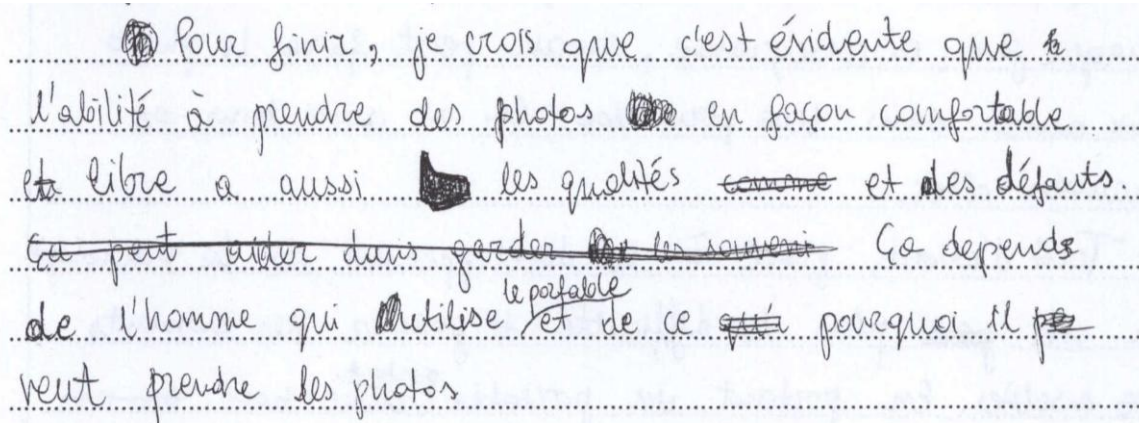 Pour finir, je crois que c'est évidente que
l'abilité à prendre des photos en façon comfortable
et libre a aussi les qualités et des défauts.
Ça peut aider dans garder les souvenir Ça depends
de l'homme qui utilise le portable et de ce pourquoi il
veut prendre les photos